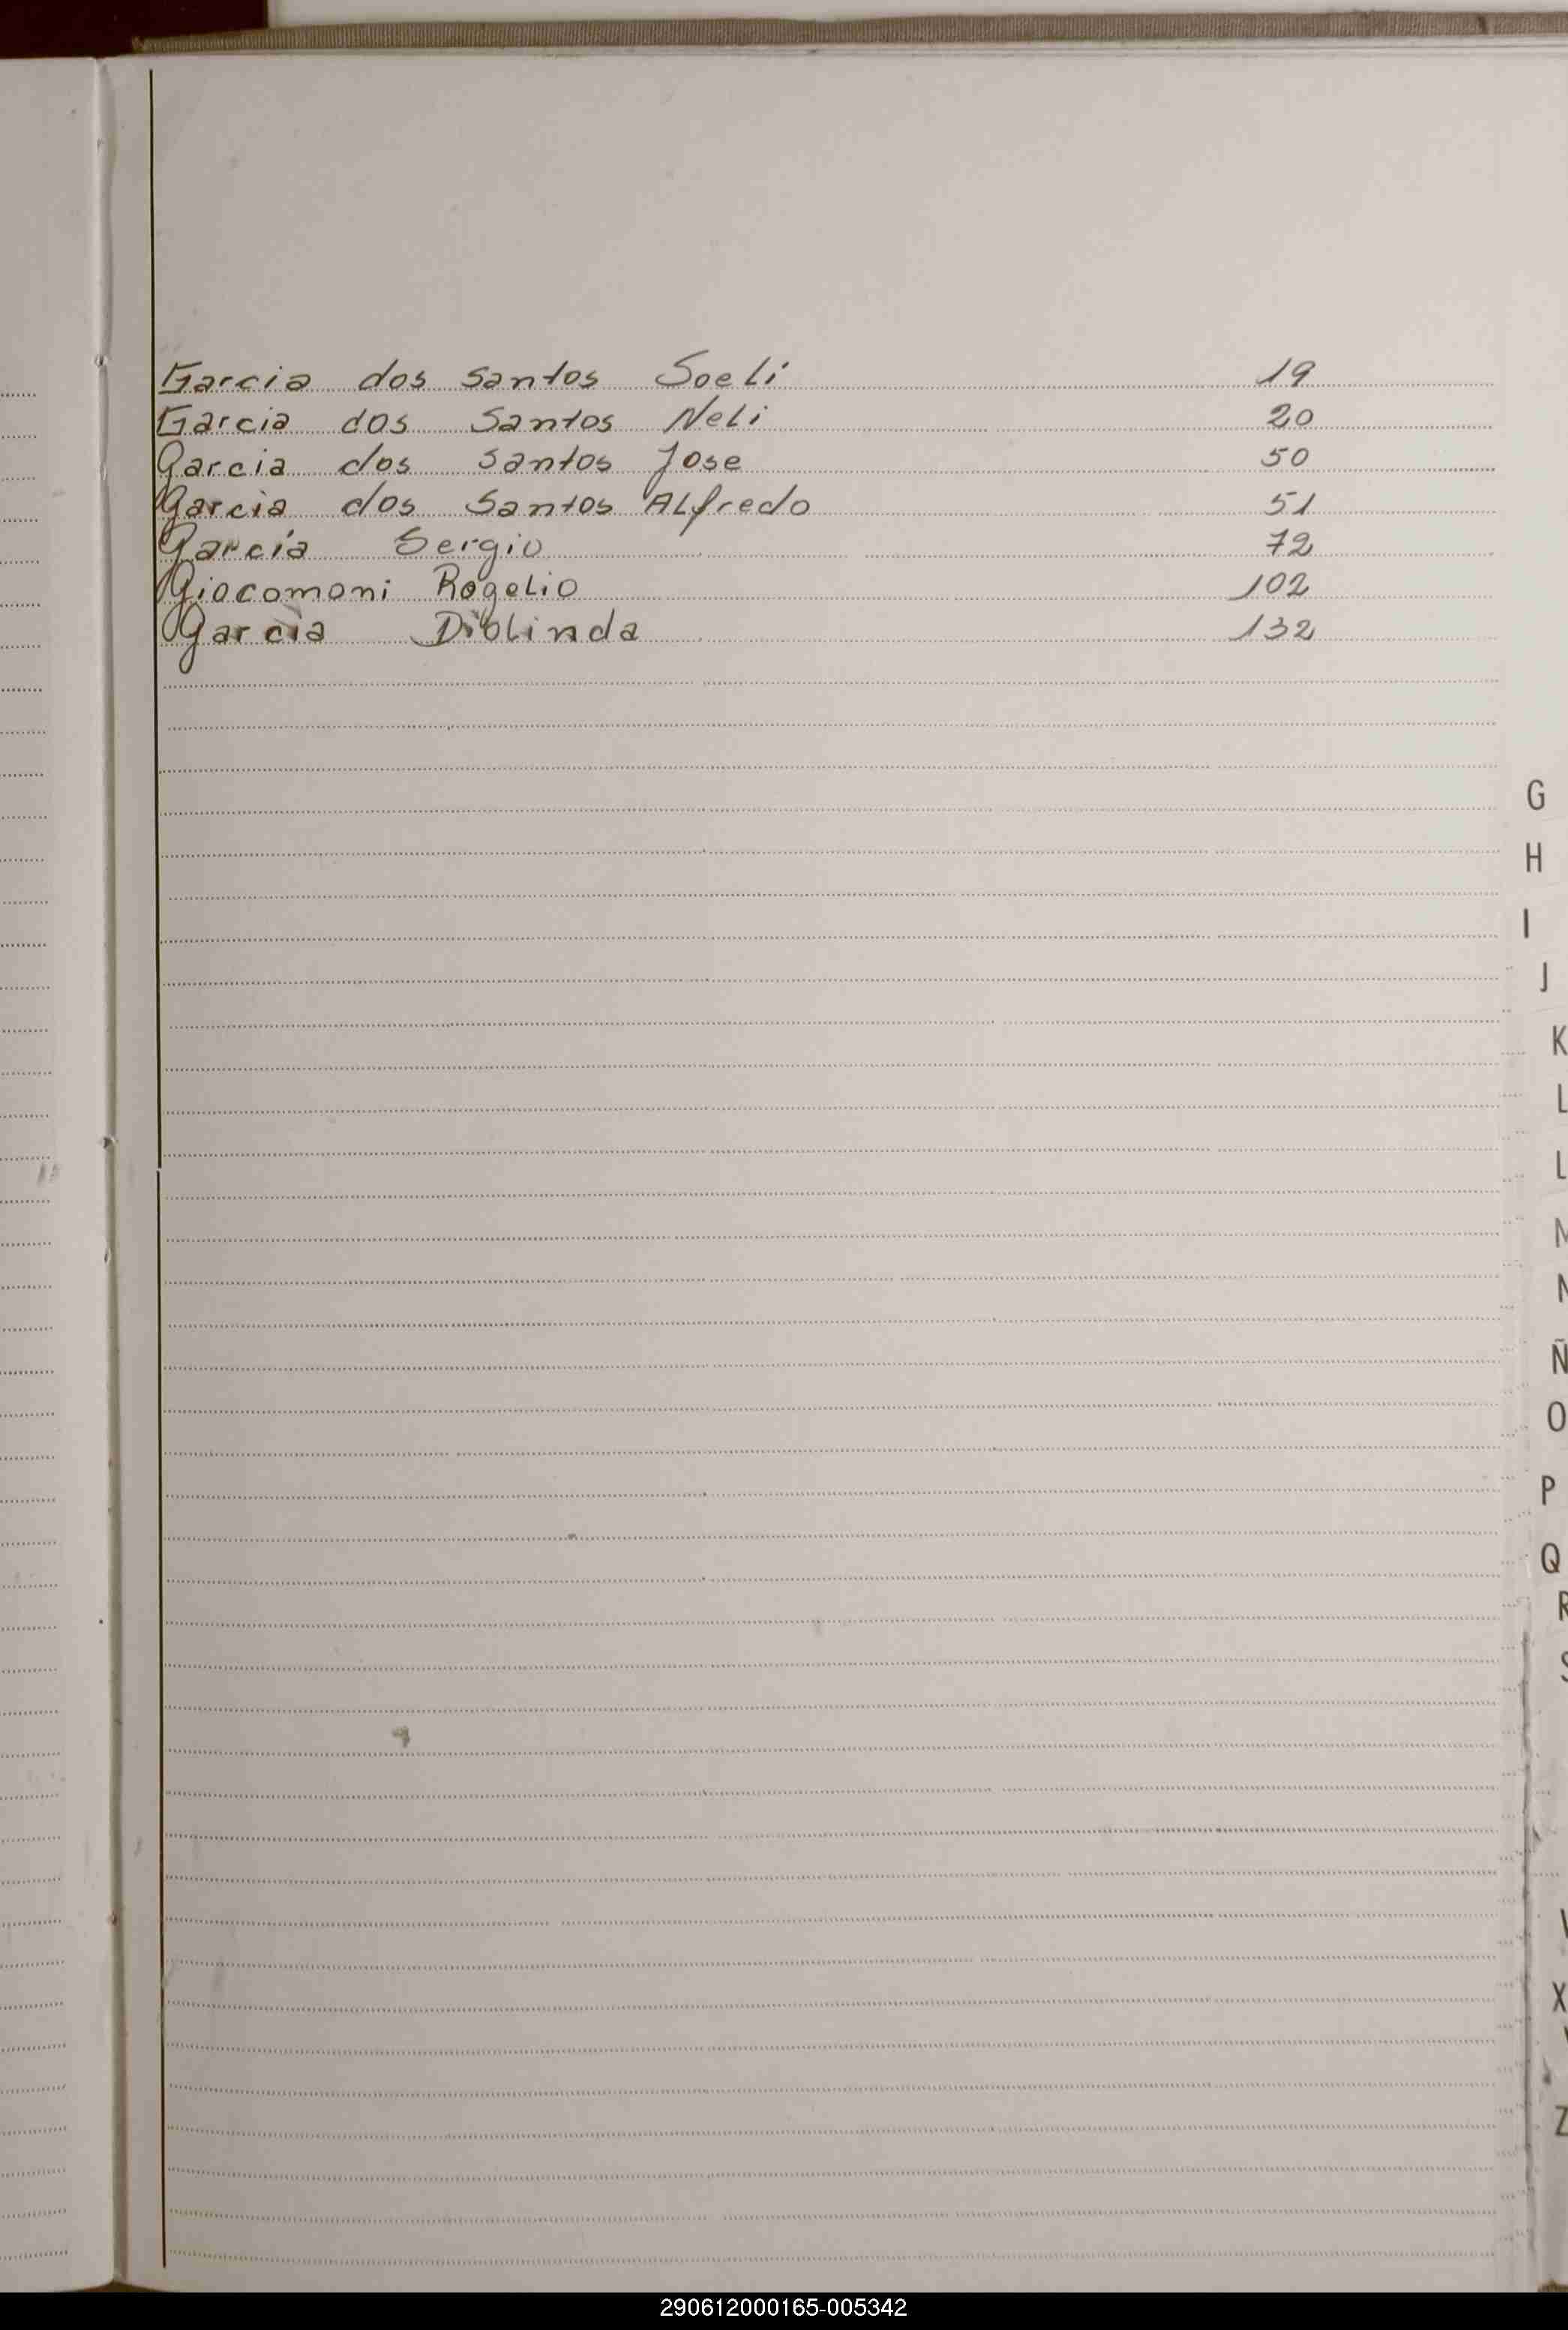 Garcia dos Santos Soeli 19
Garcia dos Santos Neli 20
Garcia dos Santos Jose 50
Garcia dos Santos Alfredo 51
Garcia Sergio 72
Giocomoni Rogelio 102
Garcia Diolinda 132
G
H
I
J
K
L
L
M
N
Ñ
O
P
Q
R
S
V
X
Y
Z
290612000165-005342